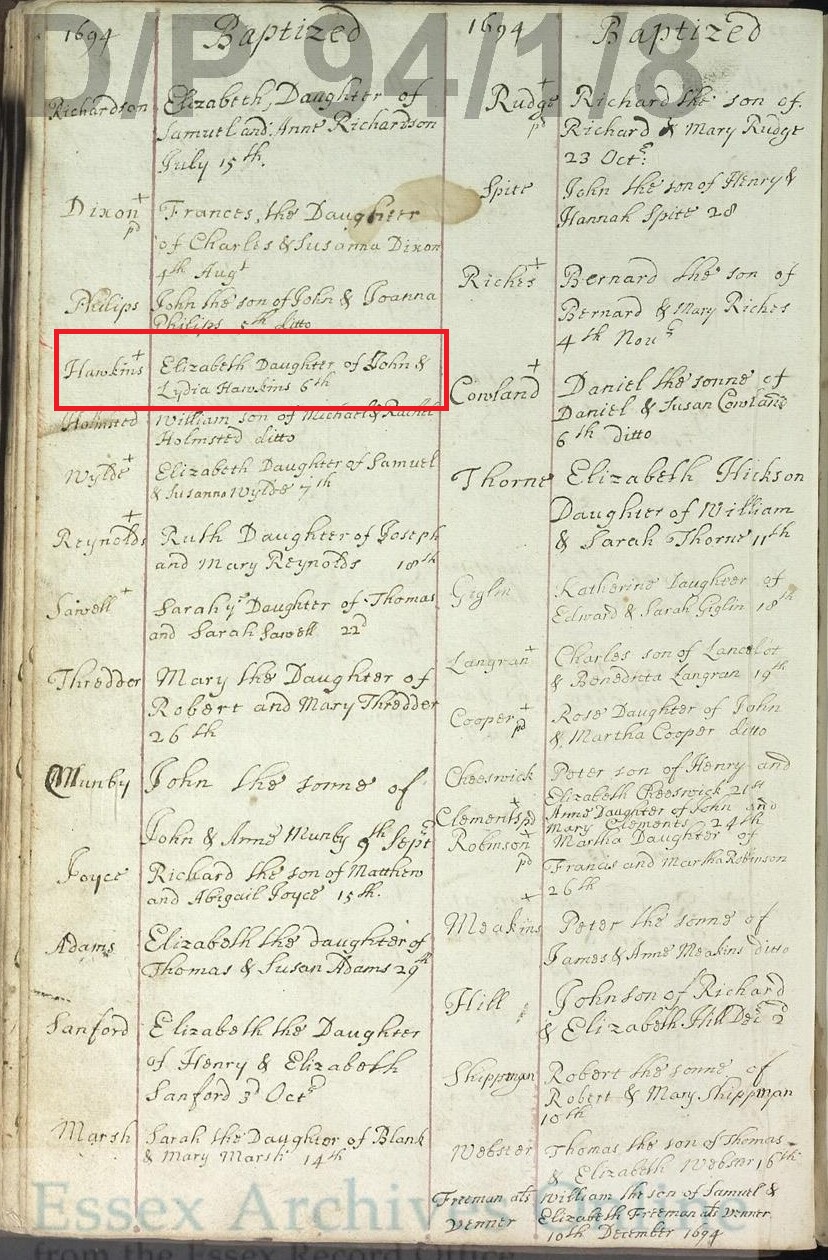 D/P 94/1/8
1694 Baptized
Richardson Elizabeth, Daughter of
Samuel and Anne Richardson
July 15th.
Dixon + pd Frances, the Daughter
of Charles & Susanna Dixon
4th Augt
Philips John the son of John & Joanna
Philips 5th ditto
Hawkins + Elizabeth Daughter of John &
Lydia Hawkins 6th
Holmsted William son of Michael & Rachel
Holmsted ditto
Wylde + Elizabeth Daughter of Samuel
& Susanna Wylde 7th
Reynolds + Ruth Daughter of Joseph
and Mary Reynolds 18th
Sawell + Sarah ye Daughter of Thomas
and Sarah Sawell 22d
Thredder Mary the Daughter of
Robert and Mary Thredder
26th
Munby John the sonne of
John & Anne Munby 9th Sept
Joyce Richard the son of Matthew
and Abigail Joyce 15th.
Adams Elizabeth the daughter of
Thomas & Susan Adams 29th
Sanford Elizabeth the Daughter
of Henry & Elizabeth
Sanford 3d Oct
Marsh Sarah the Daughter of Blank
& Mary Marsh 14th
1694 Baptized
Rudge + pd Richard the son of
Richard & Mary Rudge
23 Oct:
Spite John the son of Henry &
Hannah Spite 28
Riches + Bernard the son of
Bernard & Mary Riches
4th Nov
Cowland + Daniel the sonne of
Daniel & Susan Cowland
6th ditto
Thorne Elizabeth Hickson
Daughter of William
& Sarah Thorne 11th
Giglin Katherine Daughter of
Edward & Sarah Giglin 18th
Langran + Charles son of Lancelot
& Benedicta Langran 19th
Cooper + pd Rose Daughter of John
& Martha Cooper ditto
Cheeswick Peter son of Henry and
Elizabeth Cheeswick 21st
Clements + pd Anne Daughter of John and
Mary Clements 24th
Robinson + pd Martha Daughter of
Francis and Martha Robinson
26th
Meakins + Peter the sonne of
James & Anne Meakins ditto
Hill John son of Richard
& Elizabeth Hill Dec 2d
Shippman Robert the sonne of
Robert & Mary Shippman
10th
Webster Thomas the son of Thomas
& Elizabeth Webster 16th
Freeman als Venner William the son of Samuel &
Elizabeth Freeman als Venner
10th December 1694
Essex Archives Online
from the Essex Record Office